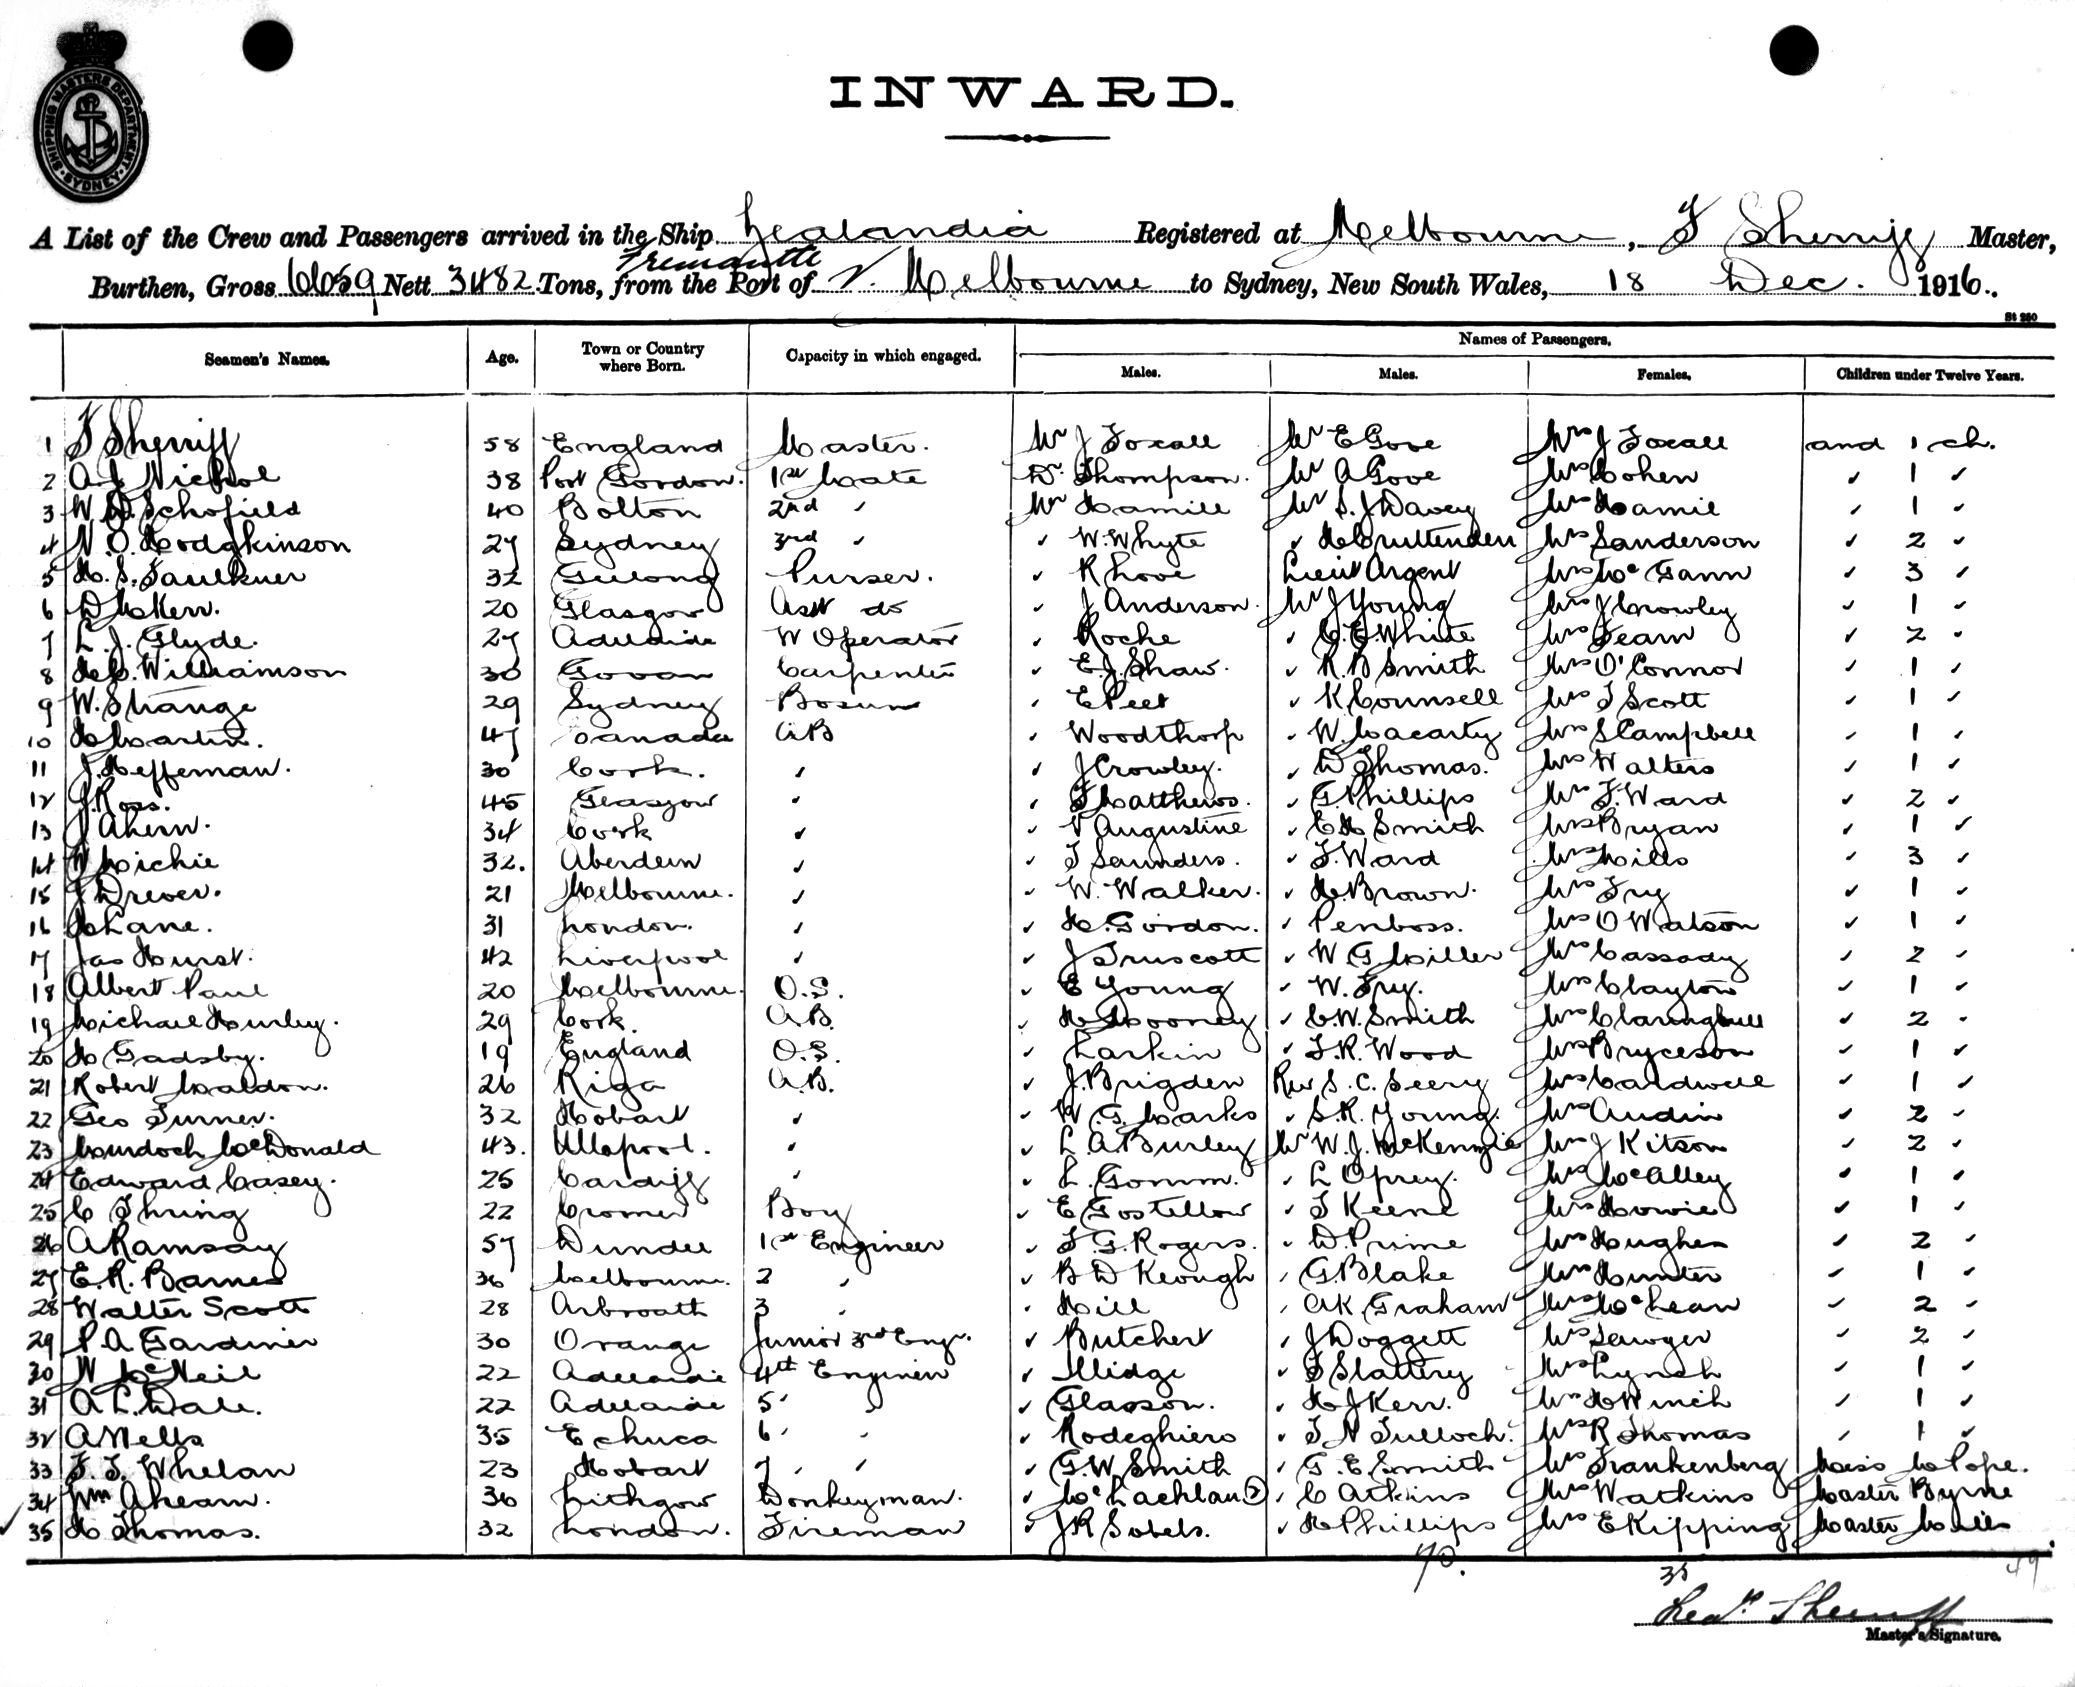 SHIPPING MASTERS DEPARTMENT
SYDNEY
INWARD.
A List of the Crew and Passengers arrived in the Ship Zealandia Registered at Melbourne, F Sherriff Master,
Fremantle
Burthen, Gross 6659 Nett 3482 Tons, from the Port of V. Melbourne to Sydney, New South Wales, 18 Dec. 1916.
St 280
Names of Passengers.
Seamen's Names. Age. Town or Country where Born. Capacity in which engaged. Males. Males. Females. Children under Twelve Years.
1 F Sherriff 58 England Master. Mr J Foxall Mr E Gove Mrs J Foxall and 1 ch.
2 A J Nichol 38 Port Gordon. 1st Mate Dr. Thompson. Mr A Gove Mrs Cohen ✓ 1 ✓
3 W D. Schofield 40 Bolton 2nd ✓ Mr Hamill Mr S. J Davey Mrs Hamil ✓ 1 ✓
4 N. O. Hodgkinson 27 Sydney 3rd ✓ ✓ W. Whyte ✓ H Cruttenden Mrs Sanderson ✓ 2 ✓
5 H. S. Faulkner 32 Geelong Purser. ✓ R Love Lieut Argent Mrs McGann ✓ 3 ✓
6 D McKerr. 20 Glasgow Asst do ✓ J Anderson. Mr J Young Mrs J Crowley ✓ 1 ✓
7 L. J. Glyde. 27 Adelaide W Operator ✓ Roche ✓ C. E. White Mrs Feam ✓ 2 ✓
8 H. C. Williamson 30 Govan Carpenter ✓ E. J. Shaw. ✓ R. B Smith Mrs O'Connor ✓ 1 ✓
9 W. Strange 29 Sydney Bosun ✓ E Peet ✓ K Counsell Mrs T Scott ✓ 1 ✓
10 H Martin. 47 Canada AB ✓ Woodthorp ✓ W. Macarty Mrs S Campbell ✓ 1 ✓
11 J. Heffernan. 30 Cork. ✓ ✓ J Crowley. ✓ D Thomas. Mrs Walters ✓ 1 ✓
12 J. Ross. 45 Glasgow ✓ ✓ F Matthews. ✓ G. Phillips Mrs F. Ward ✓ 2 ✓
13 J Ahern. 34 Cork ✓ ✓ V Augustine ✓ C H Smith Mrs Bryan ✓ 1 ✓
14 W Michie 32. Aberdeen ✓ ✓ T Saunders. ✓ F. Ward Mrs Mills ✓ 3 ✓
15 J Drever. 21 Melbourne. ✓ ✓ W. Walker. ✓ H. Brown. Mrs Fry ✓ 1 ✓
16 H Lane. 31 London. ✓ ✓ H. Gordon. ✓ Penboss. Mrs O Watson ✓ 1 ✓
17 Jas Hurst. 42 Liverpool ✓ ✓ J Truscott ✓ W. G Miller Mrs Cassady ✓ 2 ✓
18 Albert Paul 20 Melbourne. O.S. ✓ E Young ✓ W. Fry. Mrs Clayton ✓ 1 ✓
19 Michael Hurley. 29 Cork. A.B. ✓ H Mooney ✓ C. W. Smith Mrs Claringbull ✓ 2 ✓
20 H Gadsby. 19 England O.S. ✓ Larkin ✓ F. R. Wood Mrs Bryceson ✓ 1 ✓
21 Robert Maldon. 26 Riga A.B. ✓ J. Brigden Rev S. C. Seery Mrs Cardwell ✓ 1 ✓
22 Geo Turner. 32 Hobart ✓ ✓ W. G. Marks ✓ S. R. Young. Mrs Audin ✓ 2 ✓
23 Murdoch McDonald 43. Ullapool. ✓ ✓ L. A. Burley Mr W. J. McKenzie Mrs J Kitson ✓ 2 ✓
24 Edward Casey. 25 Cardiff ✓ ✓ L. Gomm. ✓ L Oprey. Mrs McAlley ✓ 1 ✓
25 C Thring 22 Cromer Boy ✓ E Gostellow ✓ T Keene Mrs Howie ✓ 1 ✓
26 A Ramsay 57 Dundee 1st Engineer ✓ F. G. Rogers. ✓ D. Prime Mrs Hughes ✓ 2 ✓
27 E. R. Barnes 36 Melbourne. 2 ✓ ✓ B D Keough ✓ G. Blake Mrs Hunter ✓ 1 ✓
28 Walter Scott 28 Arbroath 3 ✓ ✓ Hill ✓ A K. Graham Mrs McLean ✓ 2 ✓
29 P. A Gardiner 30 Orange Junior 3rd Engr. ✓ Butchert ✓ J Doggett Mrs Sawyer ✓ 2 ✓
30 N McNeil 22 Adelaide 4th Engineer ✓ Illidge ✓ T Slattery Mrs Lynch ✓ 1 ✓
31 A L. Dale. 22 Adelaide 5 ✓ ✓ Glasson. ✓ H. J Kerr. Mrs H Winch ✓ 1 ✓
32 A Wells 35 Echuca 6 ✓ ✓ Rodeghiero ✓ T N Tulloch. Mrs R Thomas ✓ 1 ✓
33 F. T. Whelan 23 Hobart 7 ✓ ✓ ✓ G. W Smith ✓ G. E. Smith Mrs Frankenberg Miss M Pope.
34 Wm Ahearn. 36 Lithgow Donkeyman. ✓ McLachlan (2) ✓ C Atkins Mrs Watkins Master Byrne
✓ 35 H Thomas. 32 London. Fireman ✓ J R Sobels. ✓ H Phillips Mrs E Kipping Master Mills
70. 35 49
Fredk Sherriff
Master's Signature.